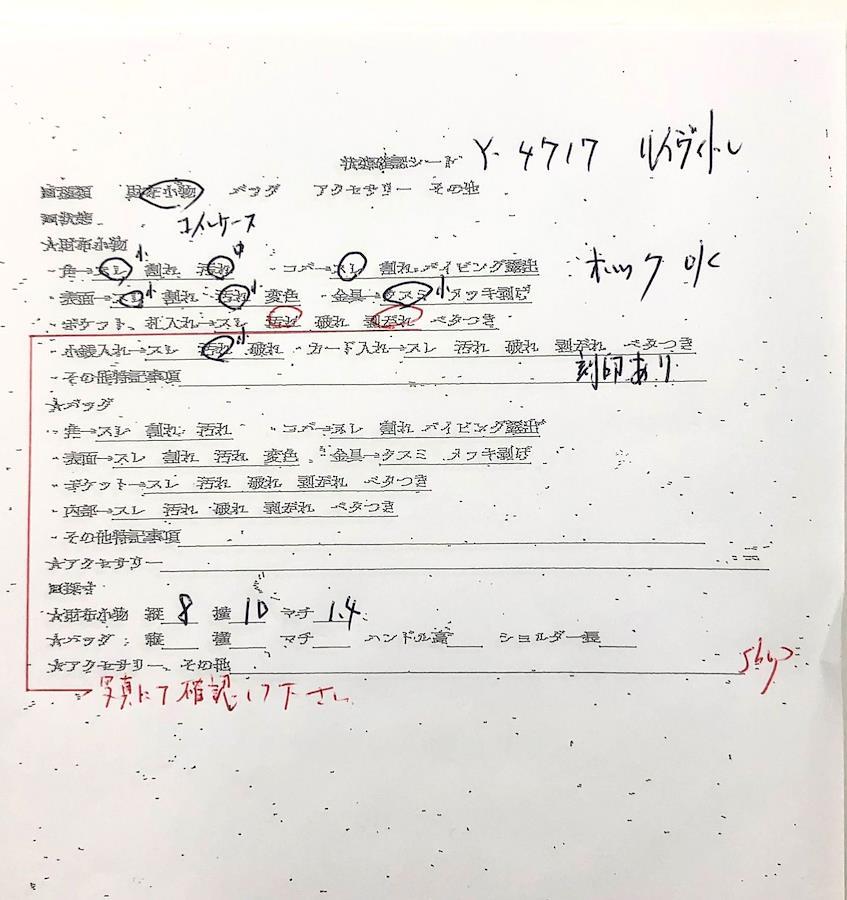 状態確認シート Y-4717 ルイヴィトン
■種類 財布小物 バッグ アクセサリー その他
■状態 コインケース
★財布小物
・角→スレ 小 割れ 汚れ 中 ・コバ→スレ 割れ パイピング露出 ホック OK
・表面→スレ 小 割れ 汚れ 小 変色 ・金具→クスミ 小 メッキ剥げ
・ポケット、札入れ→スレ 汚れ 破れ 剥がれ ベタつき
・小銭入れ→スレ 汚れ 小 破れ ・カード入れ→スレ 汚れ 破れ 剥がれ ベタつき
・その他特記事項 刻印あり
★バッグ
・角→スレ 割れ 汚れ ・コバ→スレ 割れ パイピング露出
・表面→スレ 割れ 汚れ 変色 ・金具→クスミ メッキ剥げ
・ポケット→スレ 汚れ 破れ 剥がれ ベタつき
・内部→スレ 汚れ 破れ 剥がれ ベタつき
・その他特記事項
★アクセサリー
■採寸
★財布小物 縦 8 横 10 マチ 1.4
★バッグ 縦 横 マチ ハンドル高 ショルダー長
★アクセサリー、その他
写真にて確認して下さい